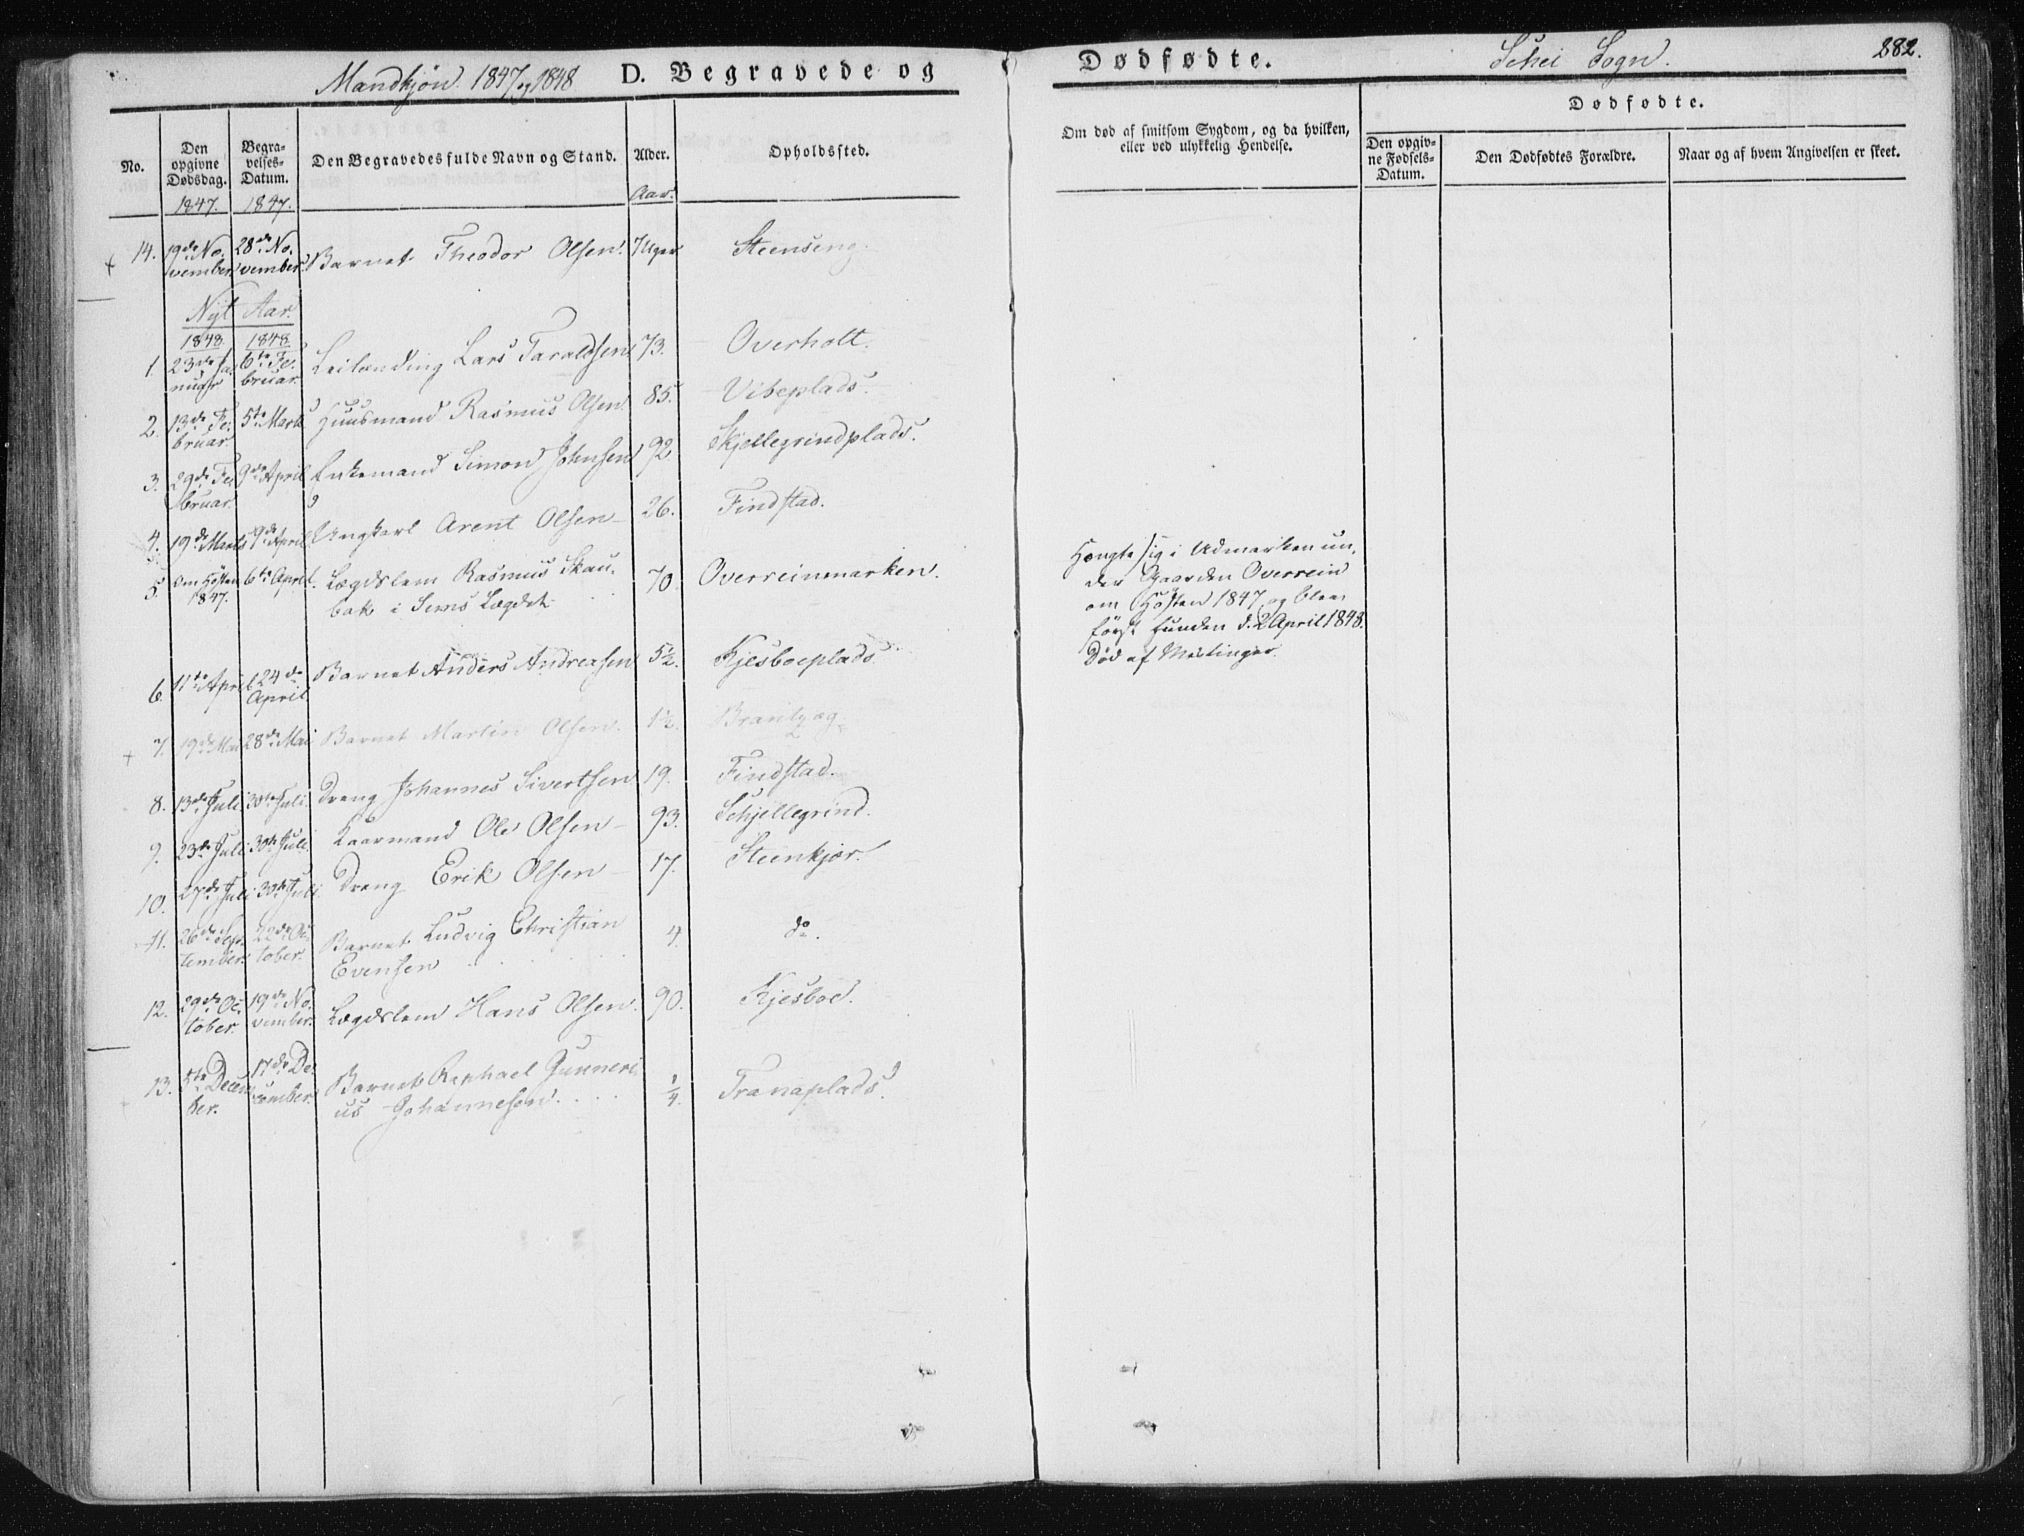 Mandkjøn. 1847 og 1848 D. Begravede og Dødfødte. Schei Sogn. 282.
No.
Den opgivne Dødsdag.
Begravelses-Datum.
Den Begravedes fulde Navn og Stand.
Alder.
Opholdssted.
Om død af smitsom Sygdom, og da hvilken, eller ved ulykkelig Hendelse.
Dødfødte.
Den opgivne Fødsels-Datum.
Den Dødfødtes Forældre.
Naar og af hvem Angivelsen er skeet.
1847. 1847. Aar.
14. 19de November 28de November. Barnet Theodor Olsen. 7 Uger Steenseng.
Nyt Aar.
1848 1848
1. 23de Januar 6te Februar. Leilænding Lars Taraldsen 73. Overholt.
2. 13de Februar. 5te Marts Huusmand Rasmus Olsen. 85. Vibeplads.
3. 29de Februar. 9de April Enkemand Simon Johnsen 92 Skjellegrindplads.
4. 19de Marts 9de April Ungkarl Arent Olsen 26. Findstad.
5. Om Høsten 1847. 6te April. Lægdslem Rasmus Skaubak i Sems Lægdet 70. Overreinmarken.
Hængte sig i Udmarken un-
der Gaarden Overrein
om Høsten 1847, og blev
først funden d. 2 April 1848.
6. 11te April 24de April Barnet Anders Andreasen 5½. Kjesboeplads.
Død af Mæslinger.
7. 19de Mai 28de Mai Barnet Martin Olsen. 1½ Brandtzæg
8. 13de Juli 30te Juli. Dreng Johannes Sivertsen 19. Findstad.
9. 23de Juli 30te Juli. Kaarmand Ole Olsen 93. Schjellegrind.
10. 27de Juli 30te Juli Dreng Erik Olsen 17. Steenkjær.
11. 26de September. 22de October. Barnet Ludvig Christian Evensen 4. do.
12. 29de October. 19de November. Lægdslem Hans Olsen. 90. Kjesboe.
13. 5te December. 17de December. Barnet Raphael Gunnerius Johannesen ¼. Tranaplads.